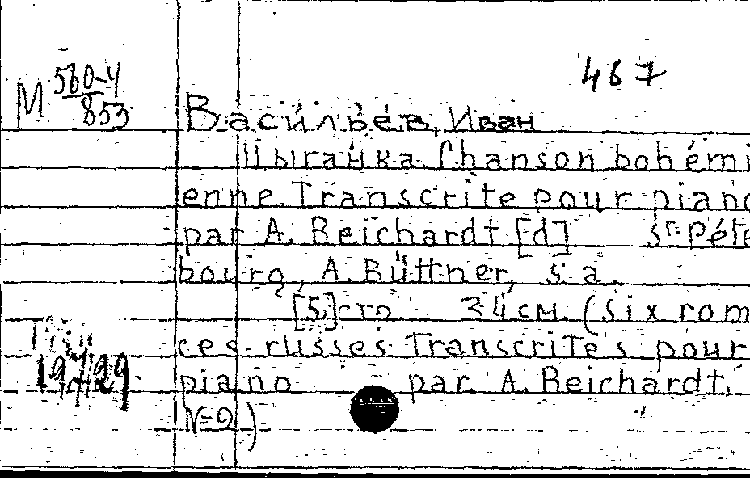 467
М 560-4
853
Васильев, Иван
Цыганка. Chanson bohémi
enne. Transcrite pour piano
par A. Reichardt [d] St. Péte
bourg, A. Büttner, s. a.
[5] стр 34 см. (Six rom
ces russes Transcrites pour
piano par A. Reichardt.
№ 2)